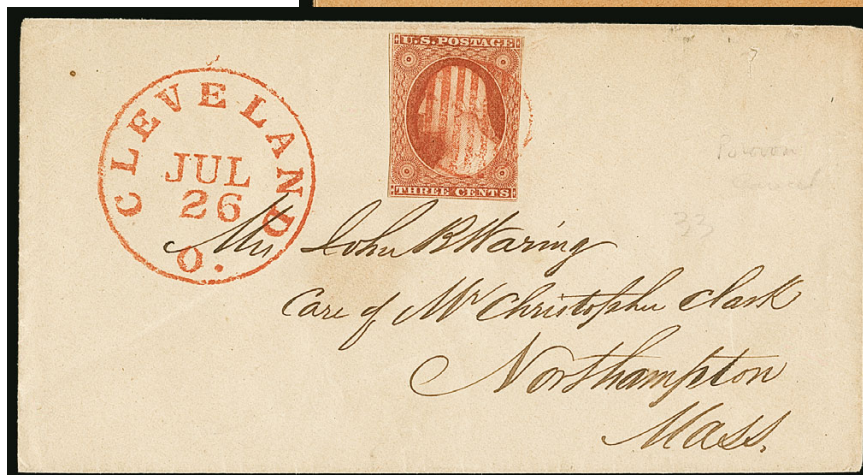 U.S. POSTAGE
THREE CENTS
CLEVELAND
JUL
26
O.
Mr John R Waring
Care of Mr Christopher Clark
Northampton
Mass.
33